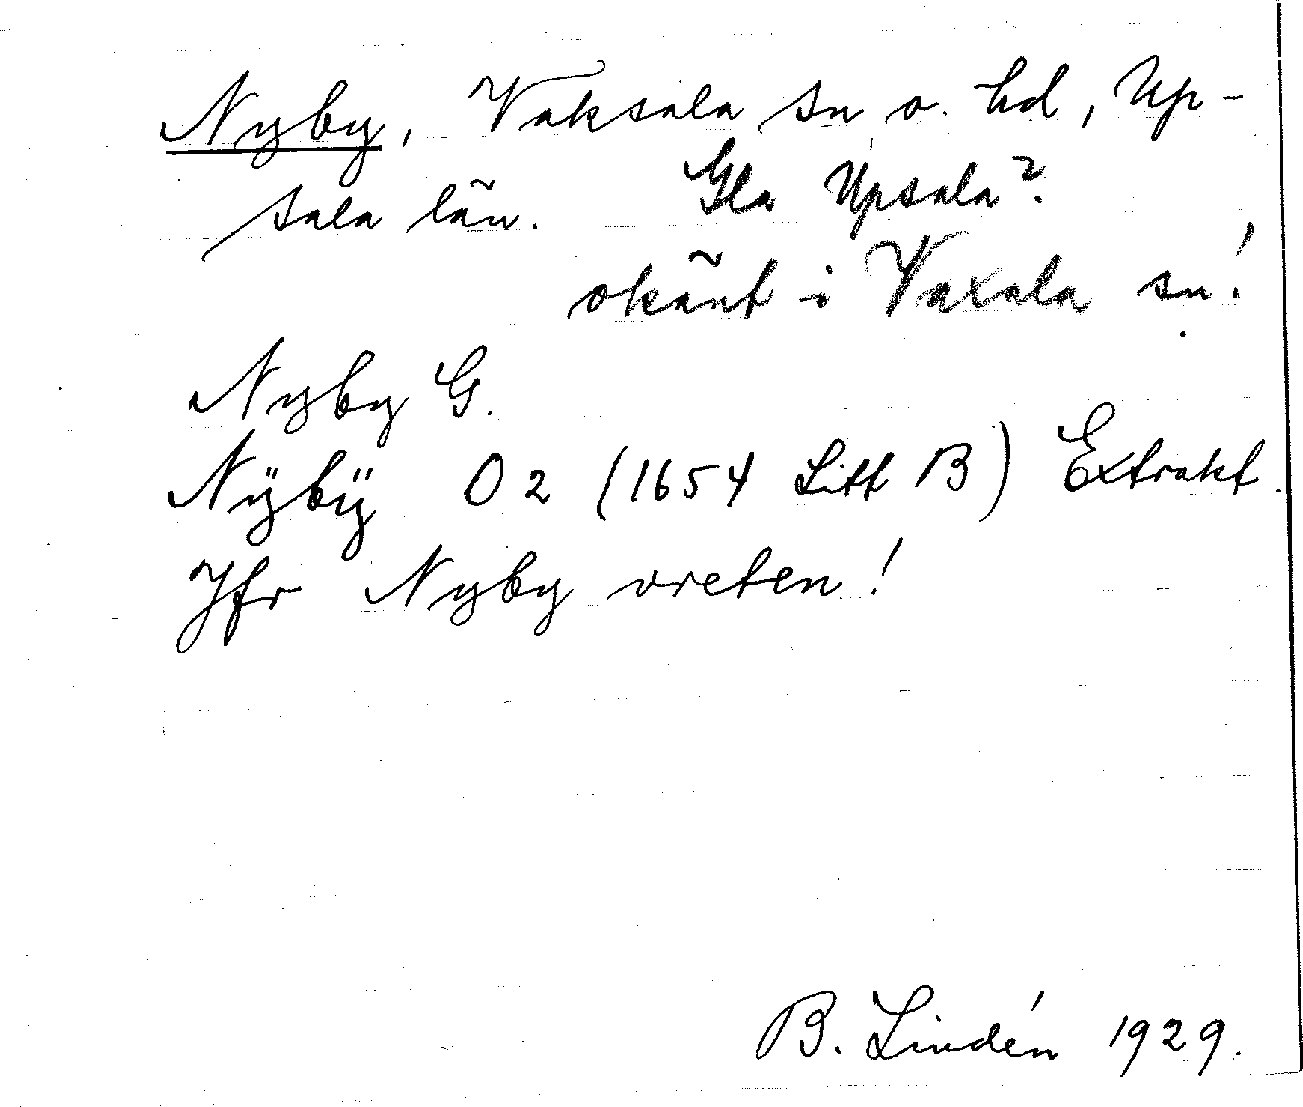 Nyby, Vaksala sn o. hd, Up-
sala län. Gla Upsala?
okänt i Vaxala sn!
Nyby G.
Nÿbÿ O2 (1654 Litt B) Extrakt.
Jfr Nyby vreten!
B. Lindén 1929.